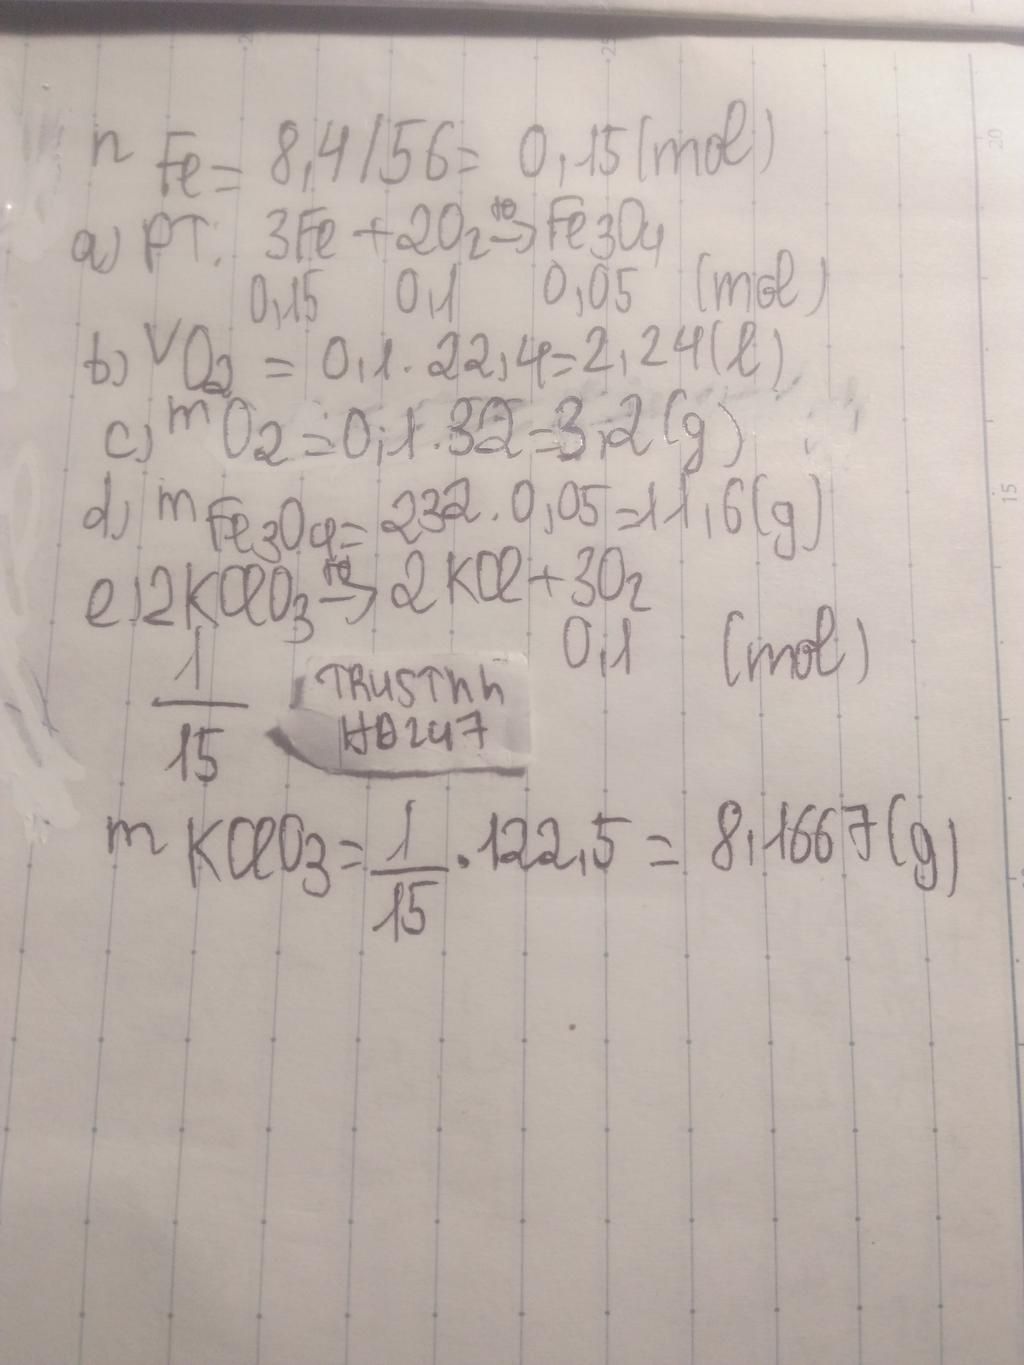 n Fe = 8,4/56 = 0,15 (mol)
a) PT: 3Fe + 2O2 to→ Fe3O4
0,15 0,1 0,05 (mol)
b) VO2 = 0,1.22,4=2,24(l)
c) mO2=0,1.32=3,2(g)
d) mFe3O4= 232.0,05=11,6(g)
e) 2KClO3 to→ 2KCl+3O2
1/15 0,1 (mol)
TRUSTnh
HD247
m KClO3 = 1/15 . 122,5 = 8,1667(g)
20
25
20
15